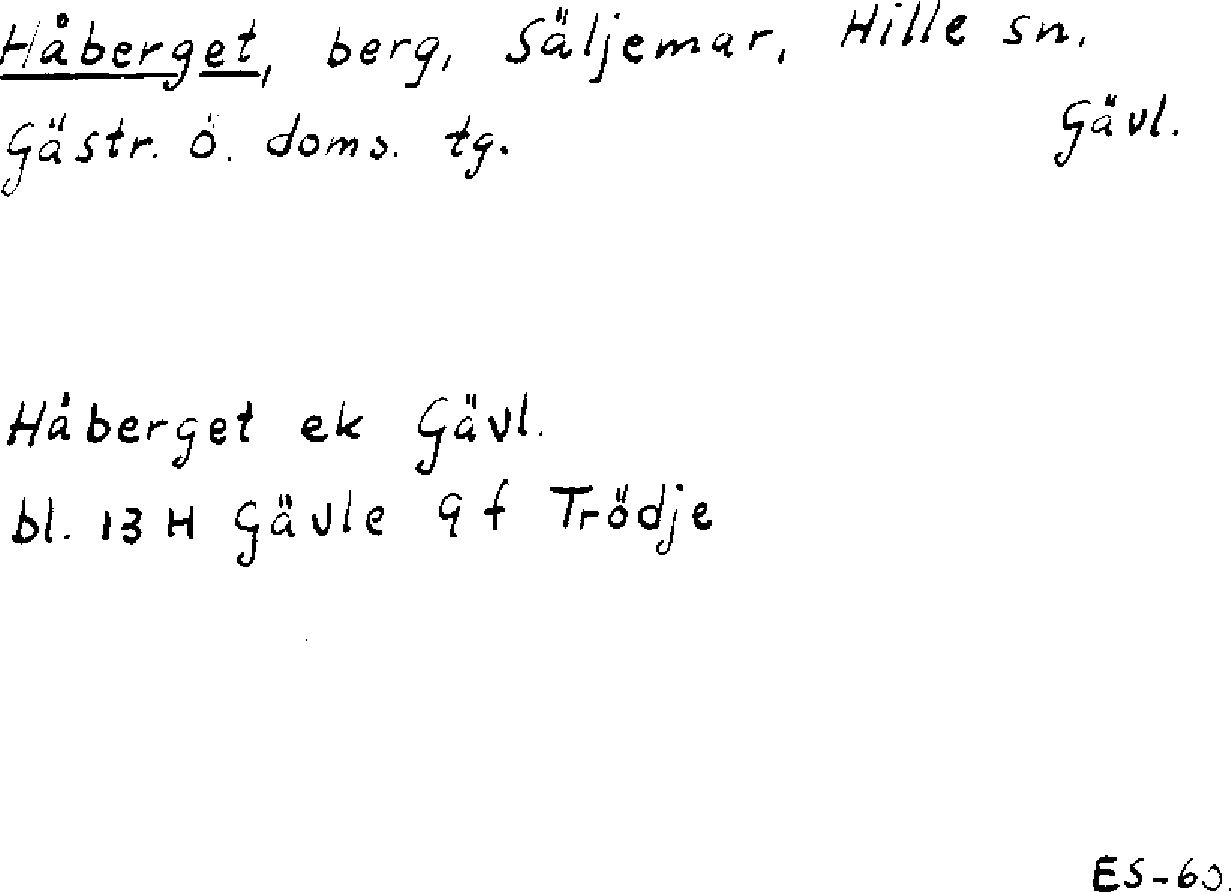 Håberget, berg, Säljemar, Hille sn,
Gästr. ö. doms. tg. Gävl.
Håberget ek Gävl.
bl. 13 H Gävle 9 f Trödje